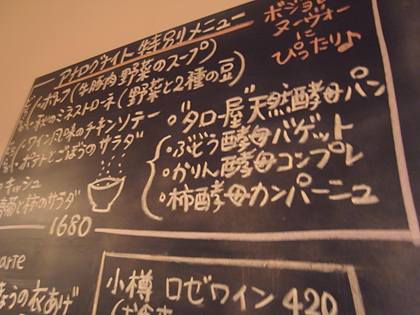 アナログナイト 特別メニュー
ボジョレ
ヌーヴォー
に
ぴったり♪
ポトフ(牛豚肉野菜のスープ)
ミネストローネ(野菜と2種の豆)
ワイン風味のチキンソテー
ポテトとごぼうのサラダ
キッシュ
春菊と柿のサラダ
1680
"タロー屋"天然酵母パン
・ぶどう酵母バゲット
・かりん酵母コンプレ
・柿酵母カンパーニュ
arte
の衣あげ
小樽 ロゼワイン 420